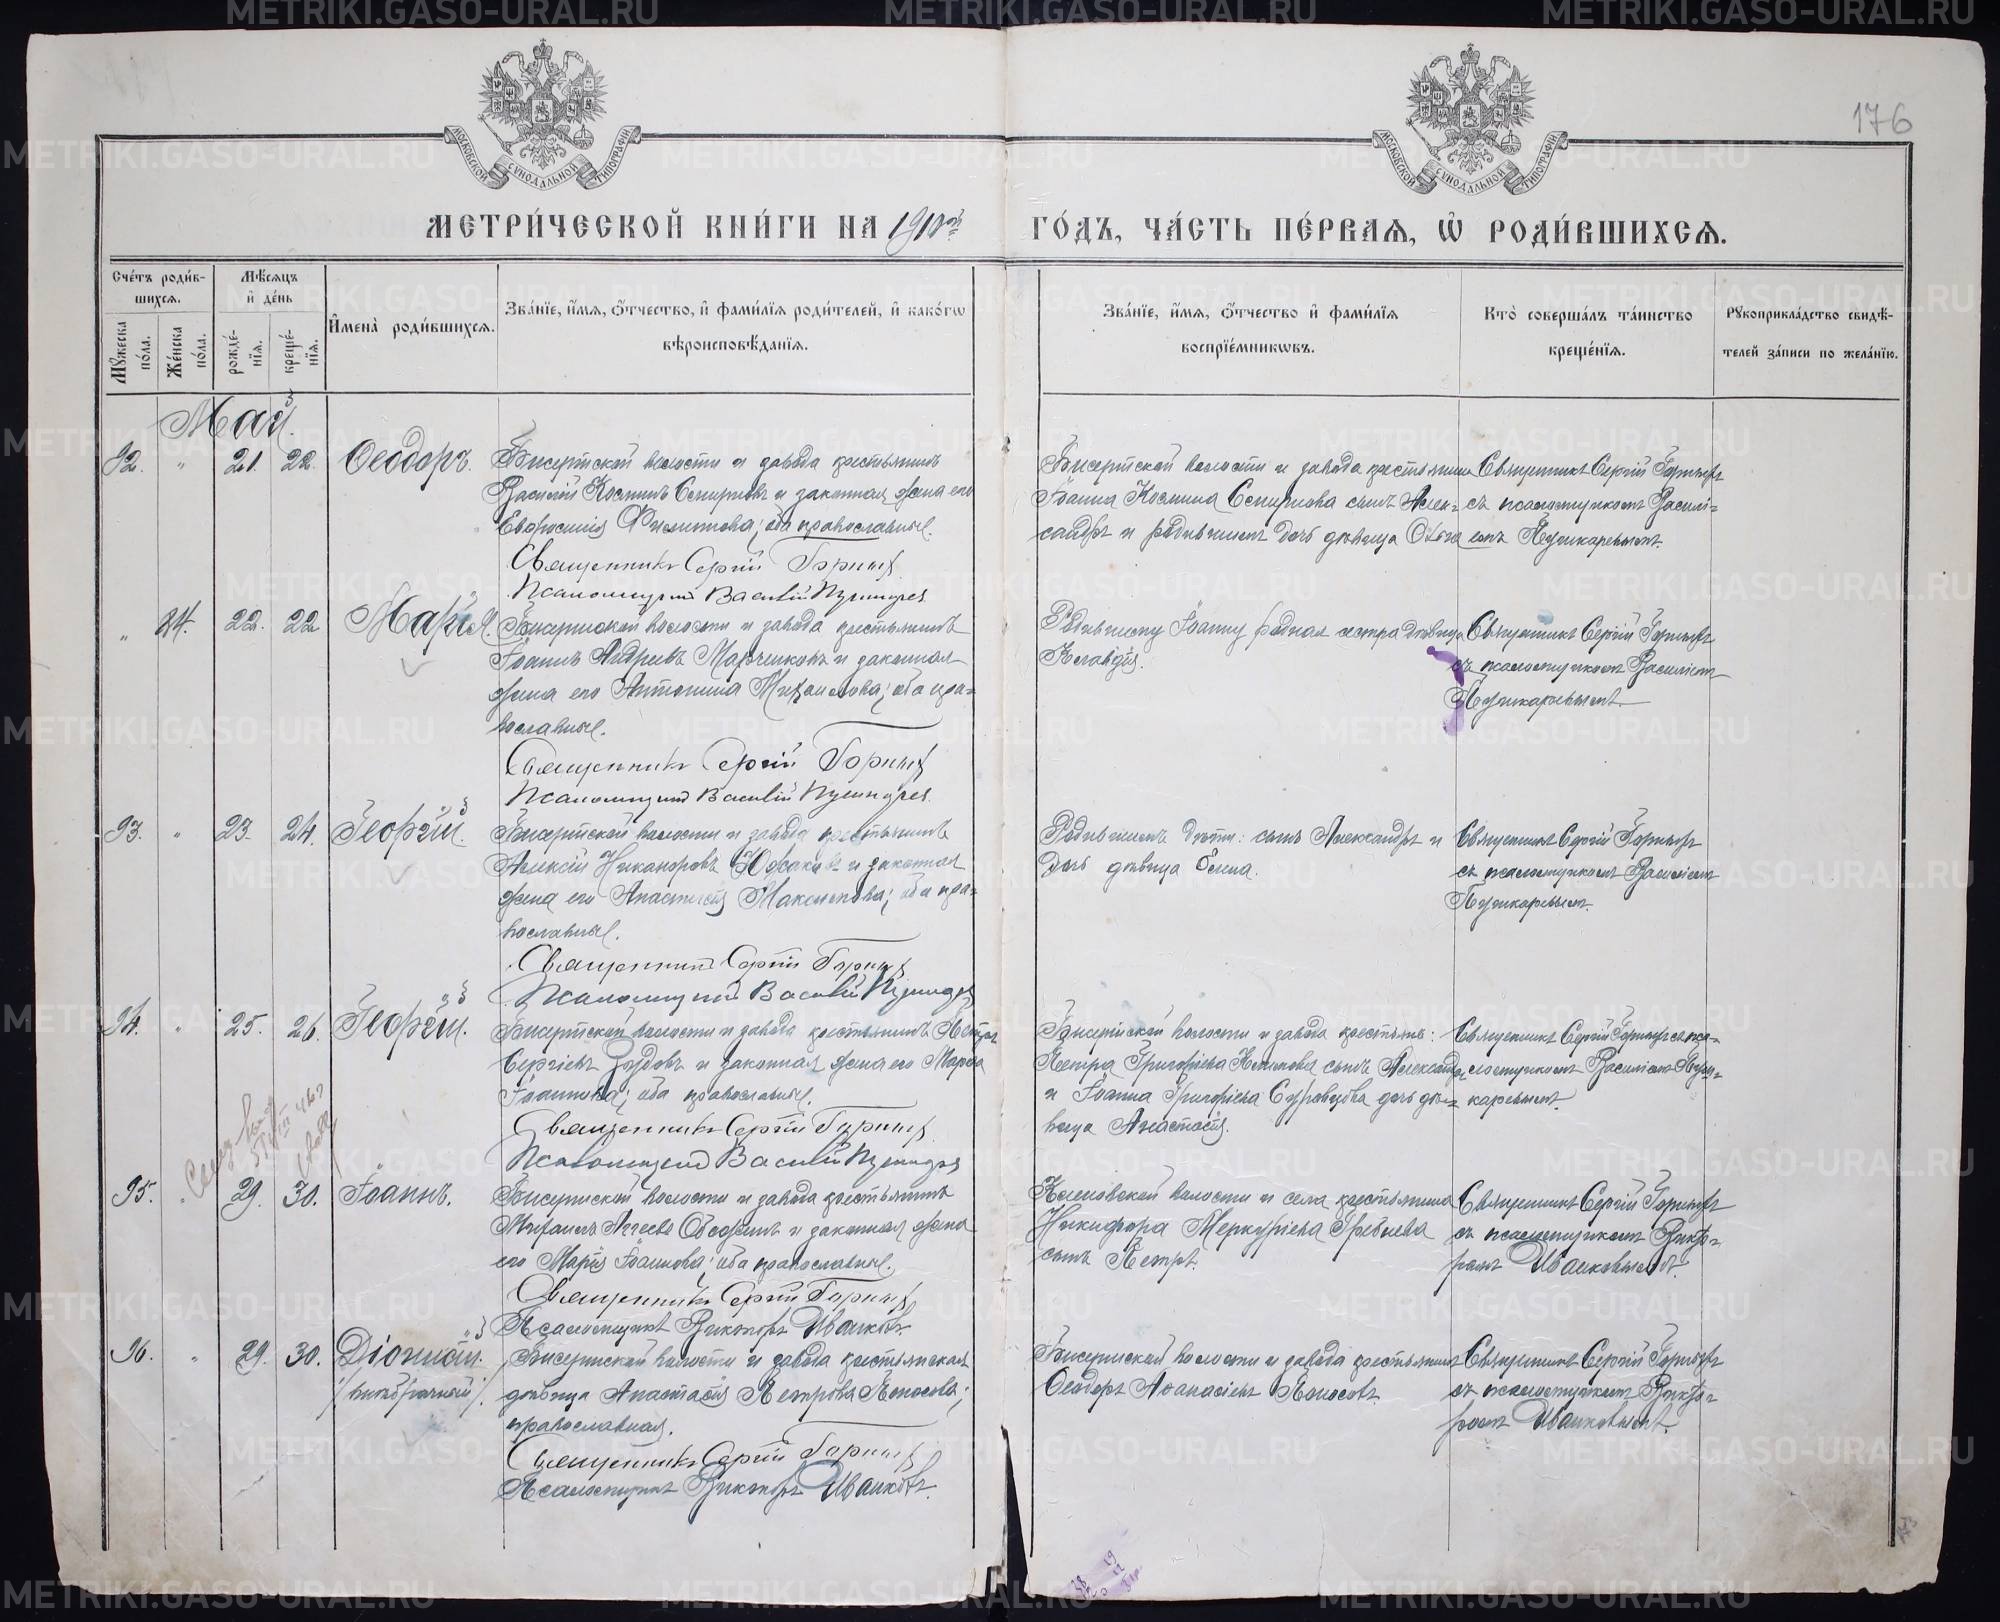 176
МОСКОВСКОЙ СѴНОДАЛЬНОЙ ТИПОГРАФІИ
МОСКОВСКОЙ СѴНОДАЛЬНОЙ ТИПОГРАФІИ
МЕТРИ́ЧЕСКОЙ КНИ́ГИ НА 1910й
ГО́ДЪ, ЧА́СТЬ ПЕ́РВАЯ, Ѡ҆ РОДИ́ВШИХСЯ.
Сче́тъ роди́в-
шихся.
Мѣ́сяцъ
и҆ де́нь
Мꙋ́жеска по́ла.
Же́нска по́ла.
рожде́-
нїя.
креще́-
нїя.
И҆мена̀ роди́вшихся.
Зва́нїе, и҆́мя, ѻ҆́тчество, и҆ фами́лїя роди́телей, и҆ како́гѡ
вѣроисповѣ́данїя.
Зва́нїе, и҆́мя, ѻ҆́тчество и҆ фами́лїя
воспрїе́мникѡвъ.
Кто̀ соверша́лъ та́инство
креще́нїя.
Рꙋкоприкла́дство свидѣ́-
телей за́писи по жела́нїю.
Май.
92. " 21. 22. Ѳеодоръ.
Бисертской волости и завода крестьянинъ
Василій Косминъ и законная жена его
Евфросинія Филиппова; оба православные.
Священникъ Сергій Горныхъ
Псаломщикъ Василій
Бисертской волости и завода крестьянина
Іоанна Космина сынъ Алек-
сандръ и родившихъ дочь дѣвица Ольга
Священникъ Сергій Горныхъ
съ псаломщикомъ Василі-
емъ Пушкаревымъ.
" 24. 22. 22 Марія.
Бисертской волости и завода крестьянинъ
Іоаннъ Андреевъ Марченковъ и законная
жена его Антонина Михаилова; оба пра-
вославные.
Священникъ Сергій Горныхъ
Псаломщикъ Василій
Родившему Іоанну родная сестра дѣвица
Клавдія.
Священникъ Сергій Горныхъ
съ псаломщикомъ Василіемъ
Пушкаревымъ.
93. " 23. 24. Георгій.
Бисертской волости и завода крестьянинъ
Алексій Никаноровъ Южаковъ и законная
жена его Анастасія Максимова; оба пра-
вославные.
Священникъ Сергій Горныхъ
Псаломщикъ Василій
Родившихъ дѣти: сынъ Александръ и
дочь дѣвица Елена.
Священникъ Сергій Горныхъ
съ псаломщикомъ Василіемъ
Пушкаревымъ.
94. " 25. 26. Георгій.
Бисертской волости и завода крестьянинъ Петръ
Сергіевъ и законная жена его Марѳа
Іоаннова; оба православные.
Священникъ Сергій Горныхъ
Псаломщикъ Василій
Бисертской волости и завода крестьянъ:
Петра Григоріева сынъ Александръ
и Іоанна Григоріева дочь дѣ-
вица Анастасія.
Священникъ Сергій Горныхъ съ пса-
ломщикомъ Василіемъ Пуш-
каревымъ.
95. " 29. 30. Іоаннъ.
Бисертской волости и завода крестьянинъ
Михаилъ Аггеевъ и законная жена
его Марія Іоаннова; оба православные.
Священникъ Сергій Горныхъ
Псаломщикъ Викторъ Иванковъ.
Кленовской волости и села крестьянина
Никифора Меркуріева Гребнева
сынъ Петръ.
Священникъ Сергій Горныхъ
съ псаломщикомъ Викто-
ромъ Иванковымъ.
96. " 29. 30. Діонисій.
/внѣбрачный/.
Бисертской волости и завода крестьянская
дѣвица Анастасія Петрова Поносова;
православная.
Священникъ Сергій Горныхъ
Псаломщикъ Викторъ Иванковъ.
Бисертской волости и завода крестьянинъ
Ѳеодоръ Аѳанасіевъ Поносовъ.
Священникъ Сергій Горныхъ
съ псаломщикомъ Викто-
ромъ Иванковымъ.
METRIKI.GASO-URAL.RU